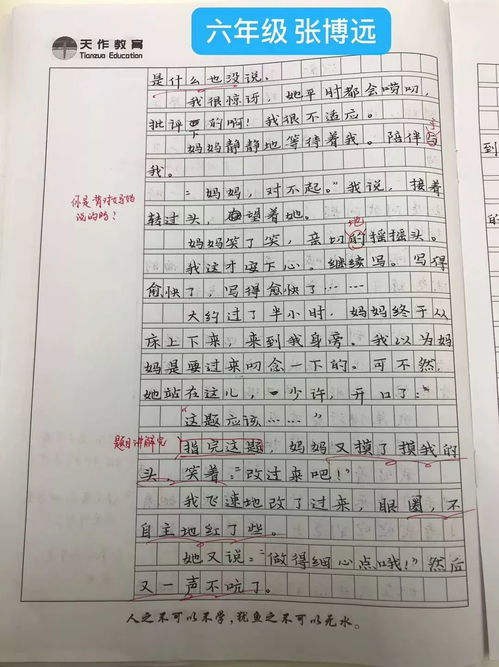 六年级 张博远
天作教育
Tianzuo Education
是什么也没说。
我很惊讶，她平时都会唠叨，
批评一下的啊！我很不适应。
妈妈静静地等待着我。陪伴着
我。
“妈妈，对不起。”我说，接着
转过头，望着她。
你是背对妈妈
说的吗？
妈妈笑了笑，亲切的摇摇头。
地
我这才安下心。继续写。写得
愉快了，写得愈快了……
大约过了半小时，妈妈终于从
床上下来，来到我身旁。我以为妈
妈是要过来叨念一下的。可不然，
她站在这儿，一少许，开口了：
“这题应该……”
题目讲解完
指完这题，妈妈又摸了摸我的
头，笑着：“改过来吧！”
我飞速地改了过来，眼圈，不
自主地红了些。
她又说：“做得细心点哦！”然后
又一声不吭了。
人之不可以不学，犹鱼之不可以无水。